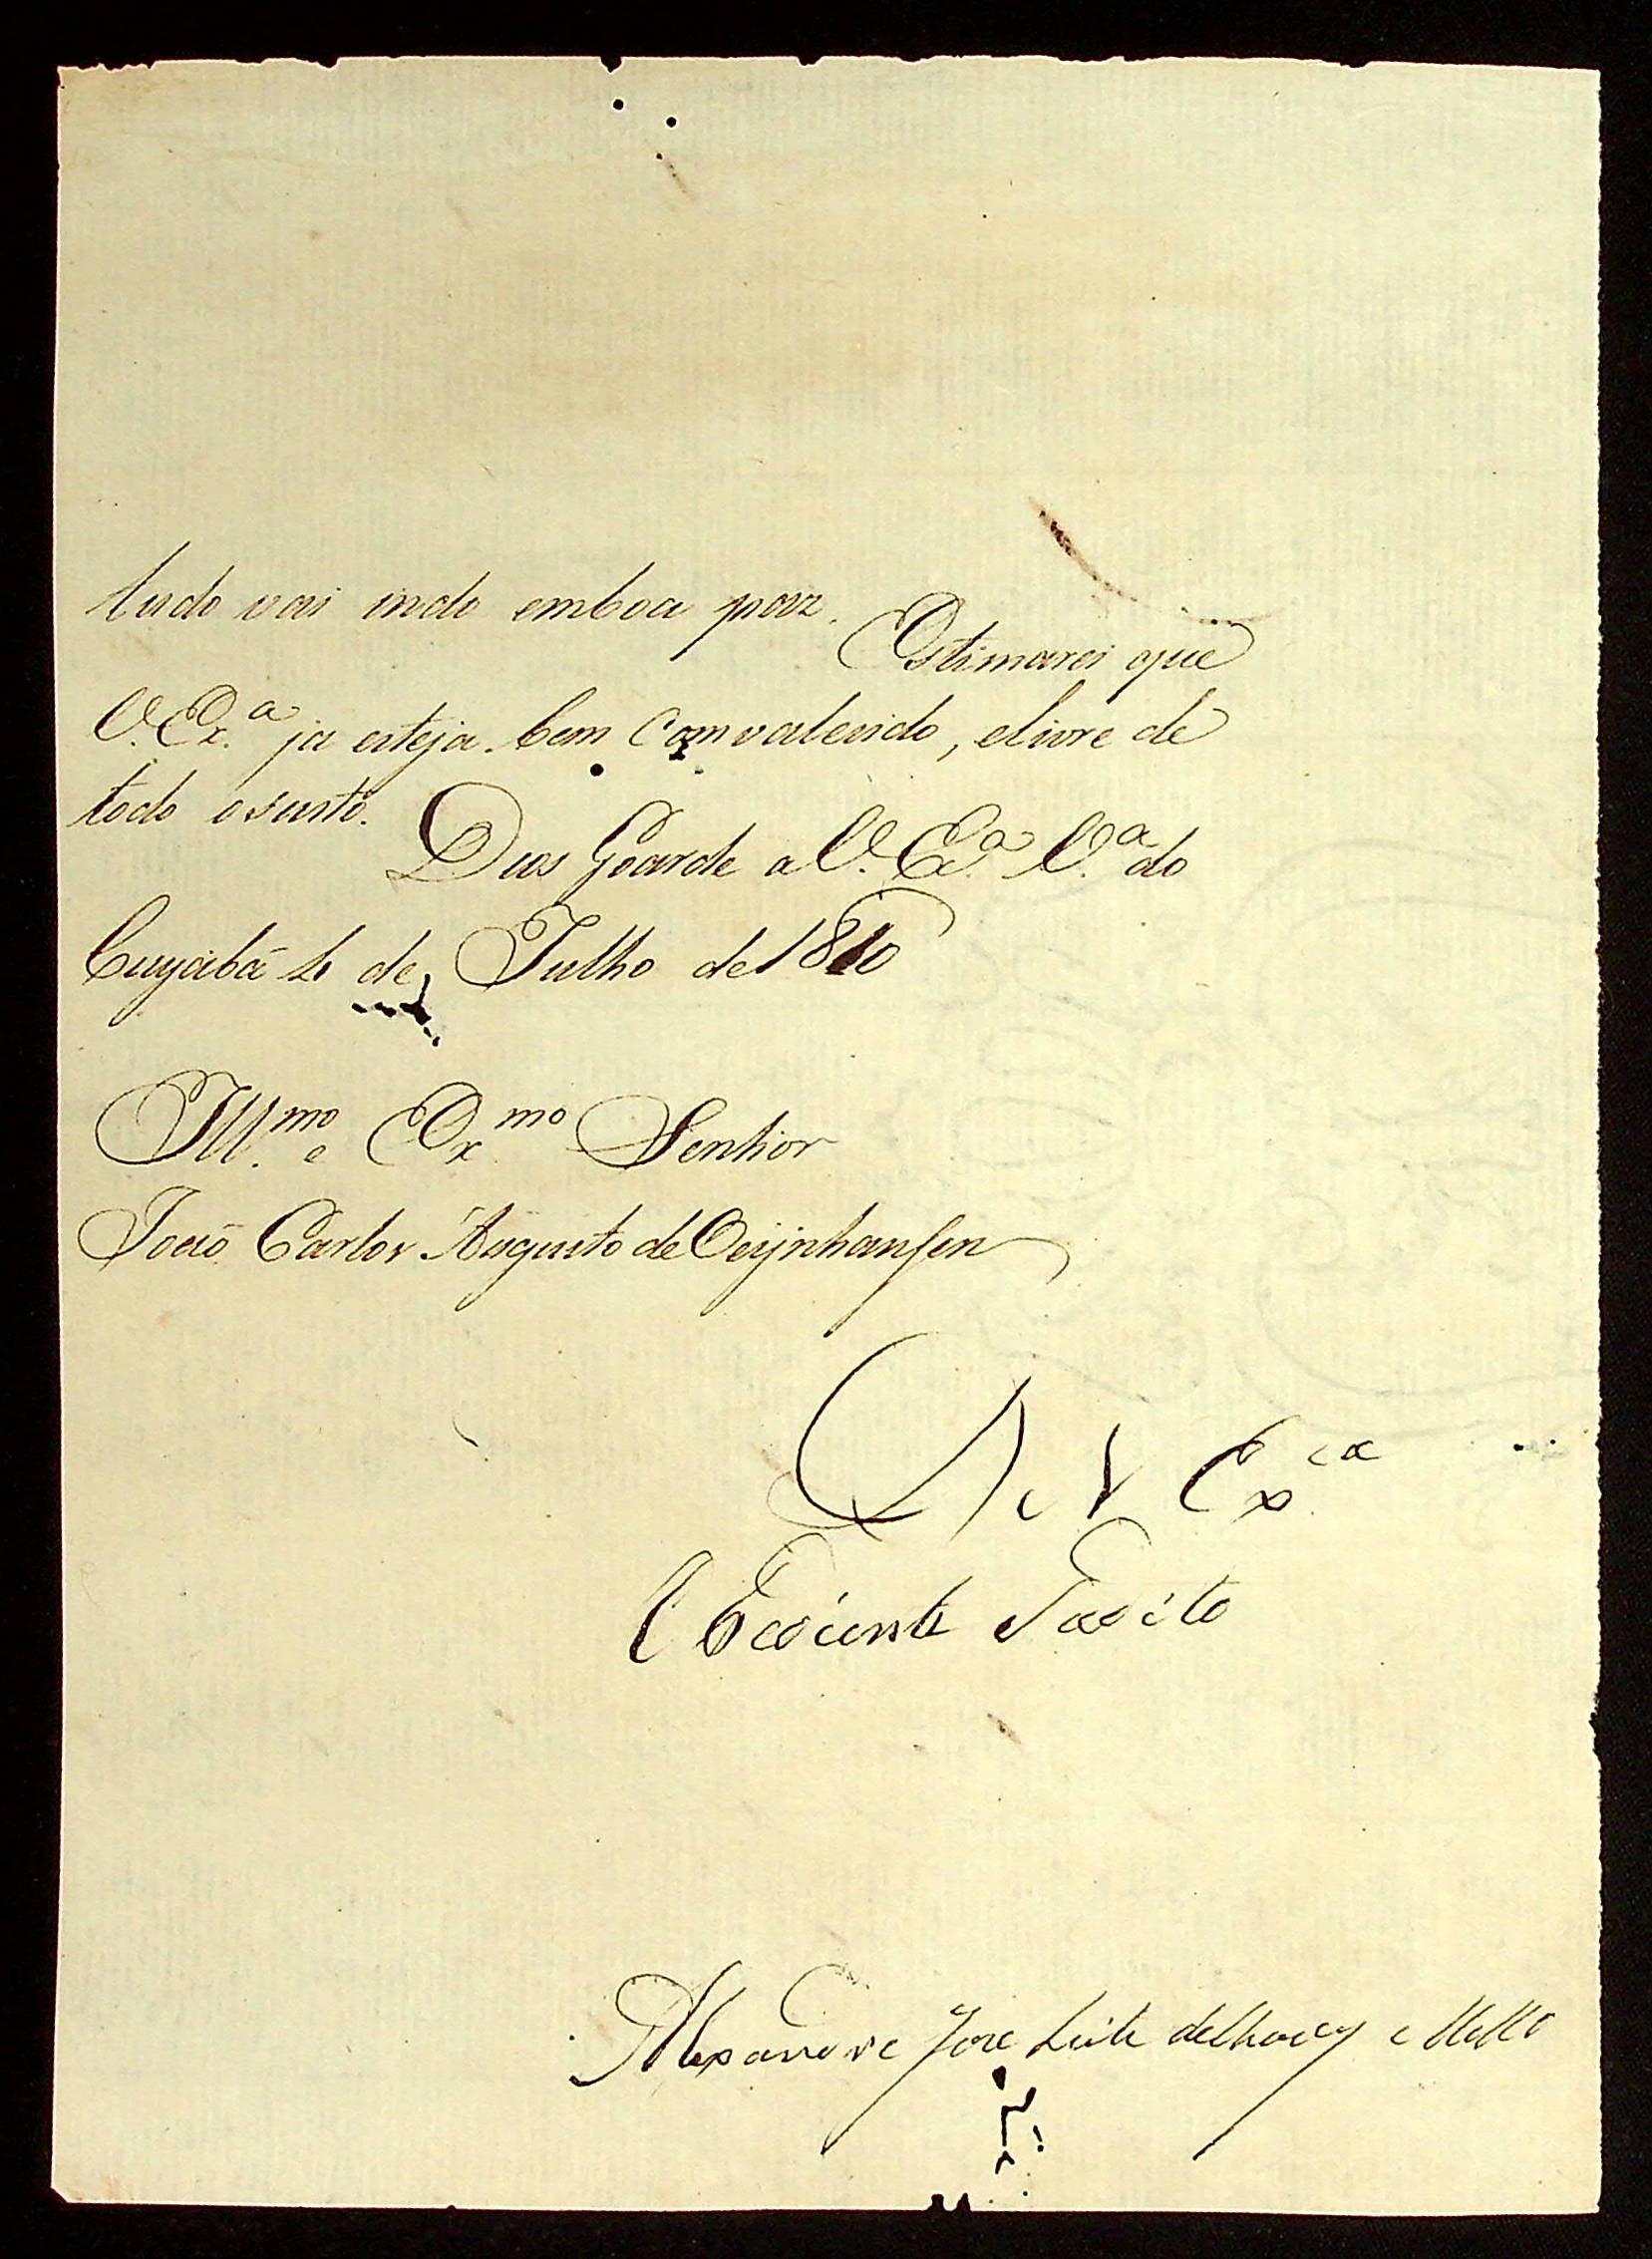 tudo vai indo emboa paz. Estimarei que
V. Ex.ª ja esteja bem Comvalecido, elivre de
todo osusto. Deos Goarde a V. Ex.ª V.ª do
Cuyabá 4 de Julho de 1810
Ill.mo e Ex.mo Senhor
João Carlos Augusto de Oeijnhausen
De V Ex.cia
O Tenente
Alexandre Joze Leite de Chaves e Mello